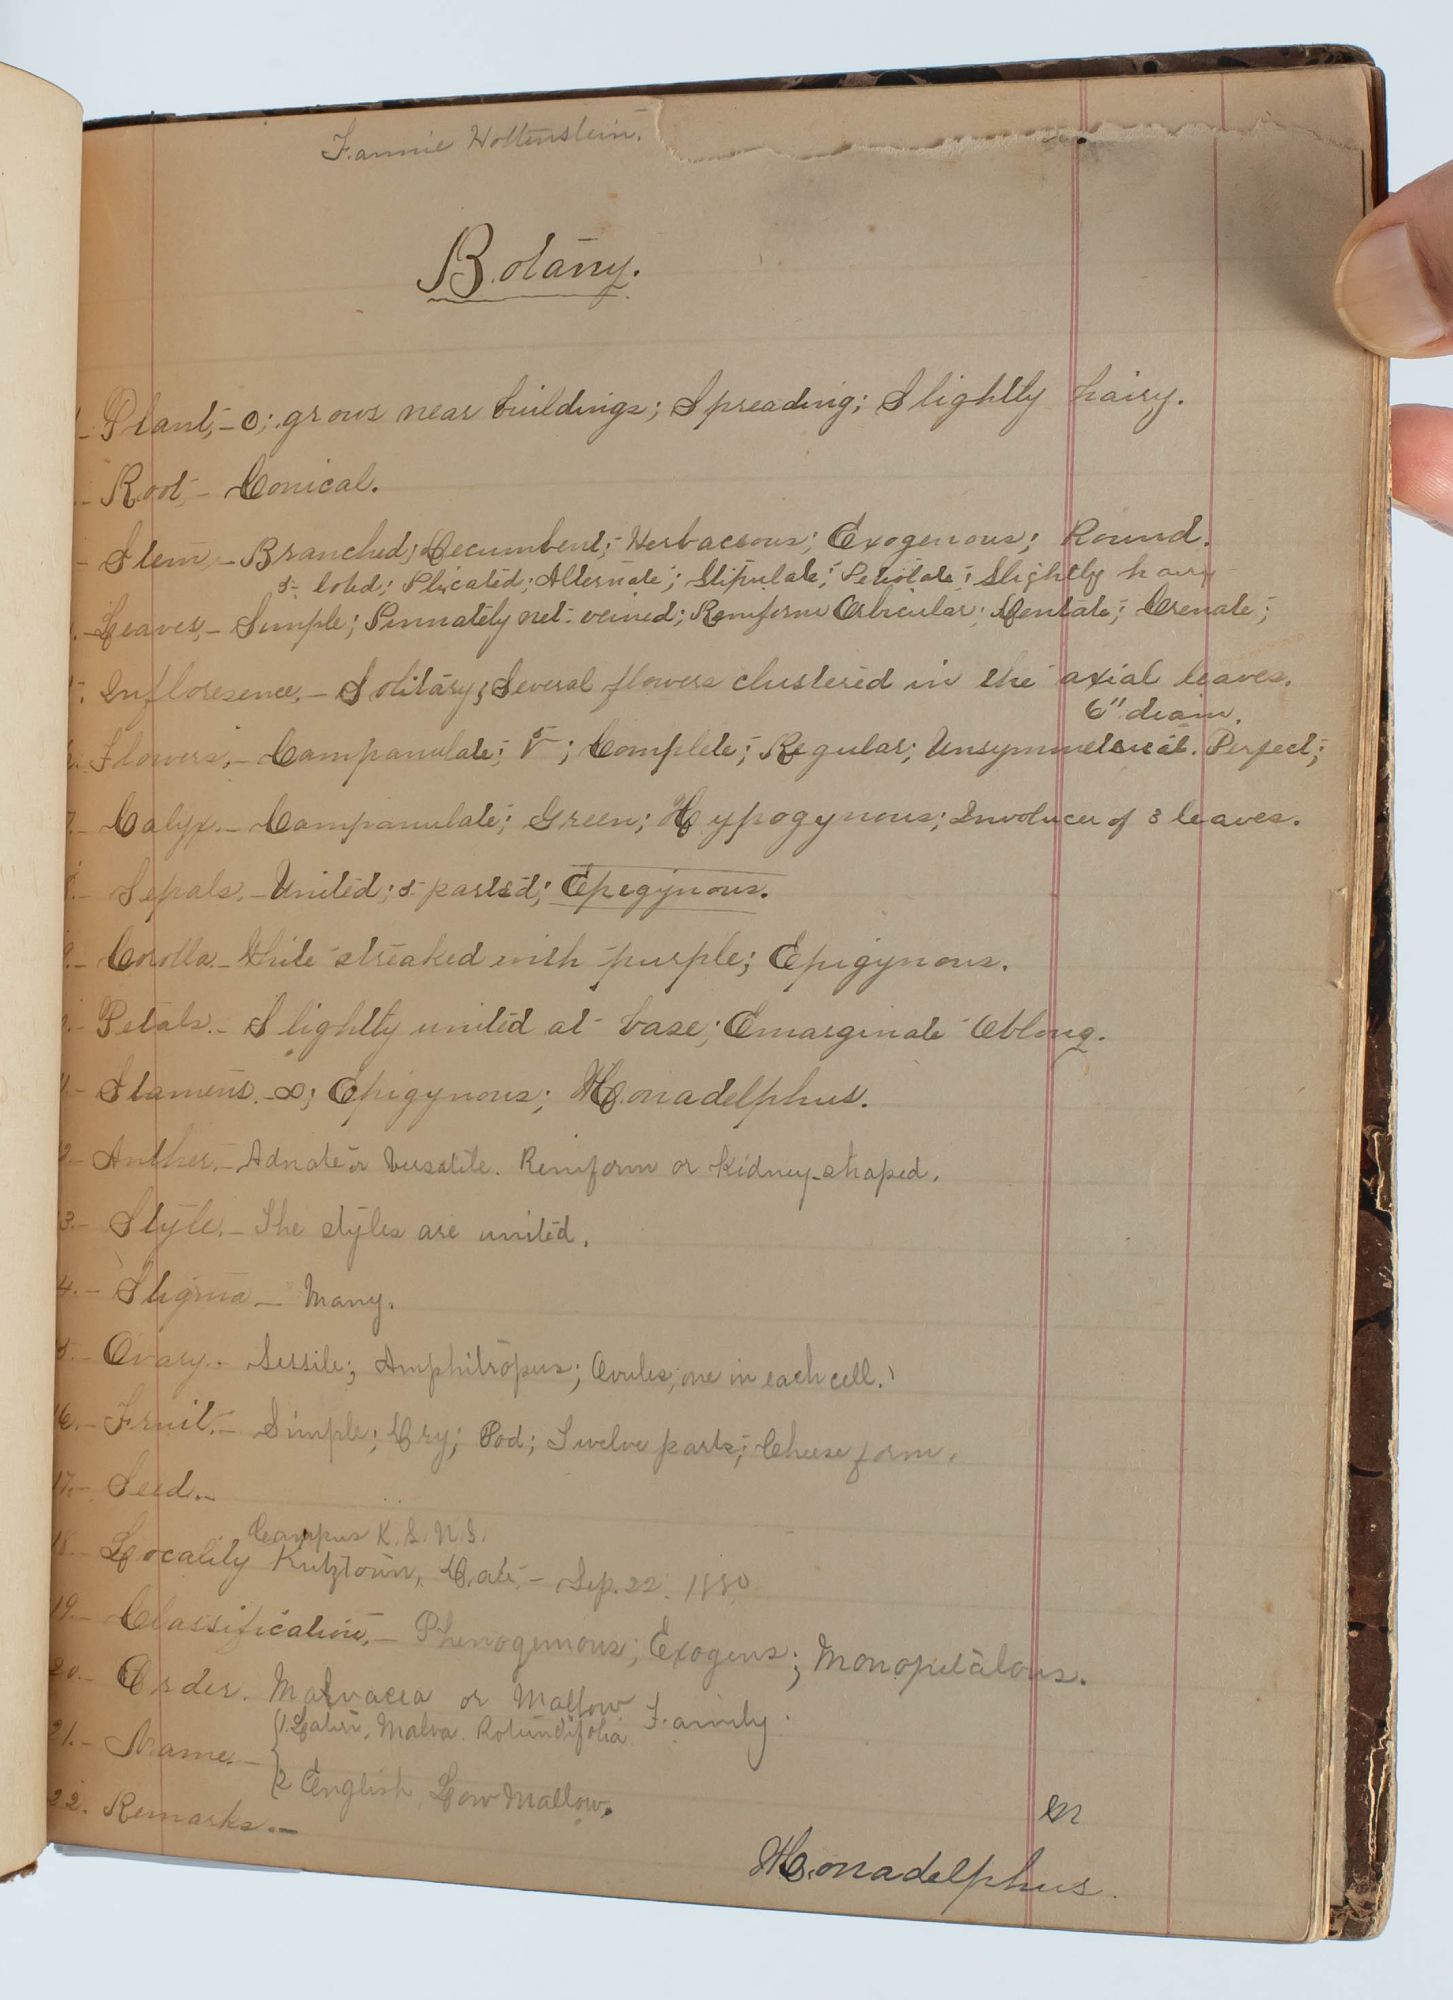 Fannie Hottenstein.
Botany.
- Plant,- O; grows near buildings; Spreading; Slightly hairy.
- Root,- Conical.
- Stem,- Branched; Decumbent; Herbaceous; Exogenous; Round.
5- lobed; Plicated; Alternate; Stipulate; Petiolate; Slightly hairy
- Leaves,- Simple; Pinnately net-veined; Reniform Orbicular; Dentate; Crenate;
Infloresence,- Solitary; Several flowers clustered in the axial leaves.
6" diam.
Flowers,- Campanulate; 5; Complete; Regular; Unsymmetrical. Perfect;
7.- Calyx.- Campanulate; Green; Hypogynous; Involucer of 3 leaves.
8.- Sepals.- United; 5 parted; Epigynous.
9.- Corolla.- White streaked with purple; Epigynous.
- Petals.- Slightly united at base; Emarginate Oblong.
- Stamens.- ∞; Epigynous; Monadelphus.
2.- Anther.- Adnate or Versatile. Reniform or Kidney-shaped.
3.- Style.- The styles are united.
4.- Stigma - Many.
5.- Ovary.- Sessile; Amphitropus; Ovules; one in each cell.
16.- Fruit.- Simple; Dry; Pod; Twelve parts; Cheese form.
17.- Seed.-
Campus K.S.N.S.
18.- Locality Kutztown, Date,- Sep. 22. 1880
19.- Classification,- Phenogemous; Exogens; Monopetalous.
20.- Order. Malvacea or Mallow Family.
1. Latin, Malva Rotundifolia
21.- Name.-
2 English, Low Mallow.
22. Remarks.-
m
Monadelphus.